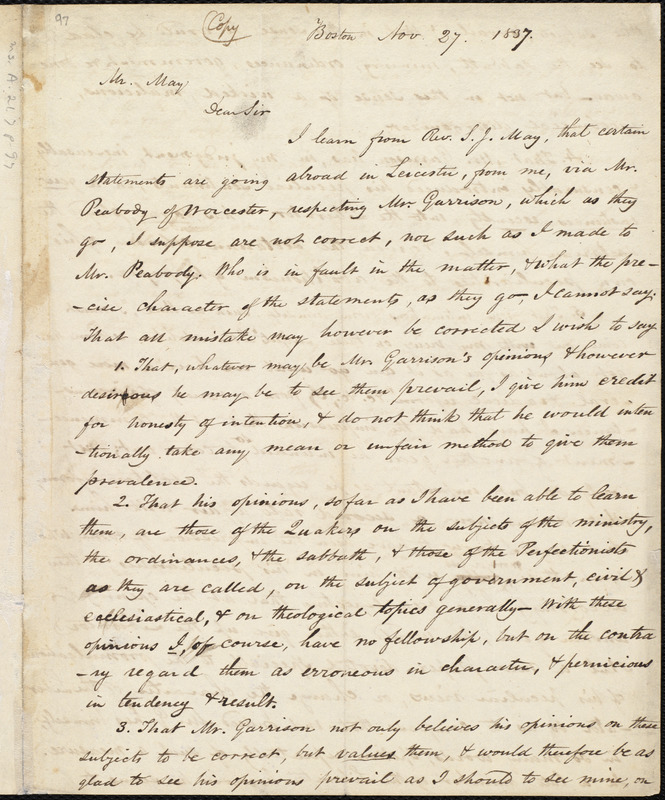 97
(Copy)
Boston Nov. 27. 1837.
Ms. A. 21. 7 p 97
Mr. May
Dear Sir
I learn from Rev. S. J. May, that certain
statements are going abroad in Leicester, from me, via Mr.
Peabody of Worcester, respecting Mr. Garrison, which as they
go, I suppose are not correct, nor such as I made to
Mr. Peabody. Who is in fault in the matter, & what the pre-
-cise character of the statements, as they go, I cannot say.
That all mistake may however be corrected I wish to say
1. That, whatever may be Mr. Garrison's opinions & however
desirous he may be to see them prevail, I give him credit
for honesty of intention, & do not think that he would inten
-tionally take any mean or unfair method to give them
prevalence.
2. That his opinions, so far as I have been able to learn
them, are those of the Quakers on the subjects of the ministry,
the ordinances, & the sabbath, & those of the Perfectionists
as they are called, on the subject of government, civil &
ecclesiastical, & on theological topics generally— With these
opinions I, of course, have no fellowship, but on the contra
-ry regard them as erroneous in character, & pernicious
in tendency & result.
3. That Mr. Garrison not only believes his opinions on these
subjects to be correct, but values them, & would therefore be as
glad to see his opinions prevail as I should to see mine, on